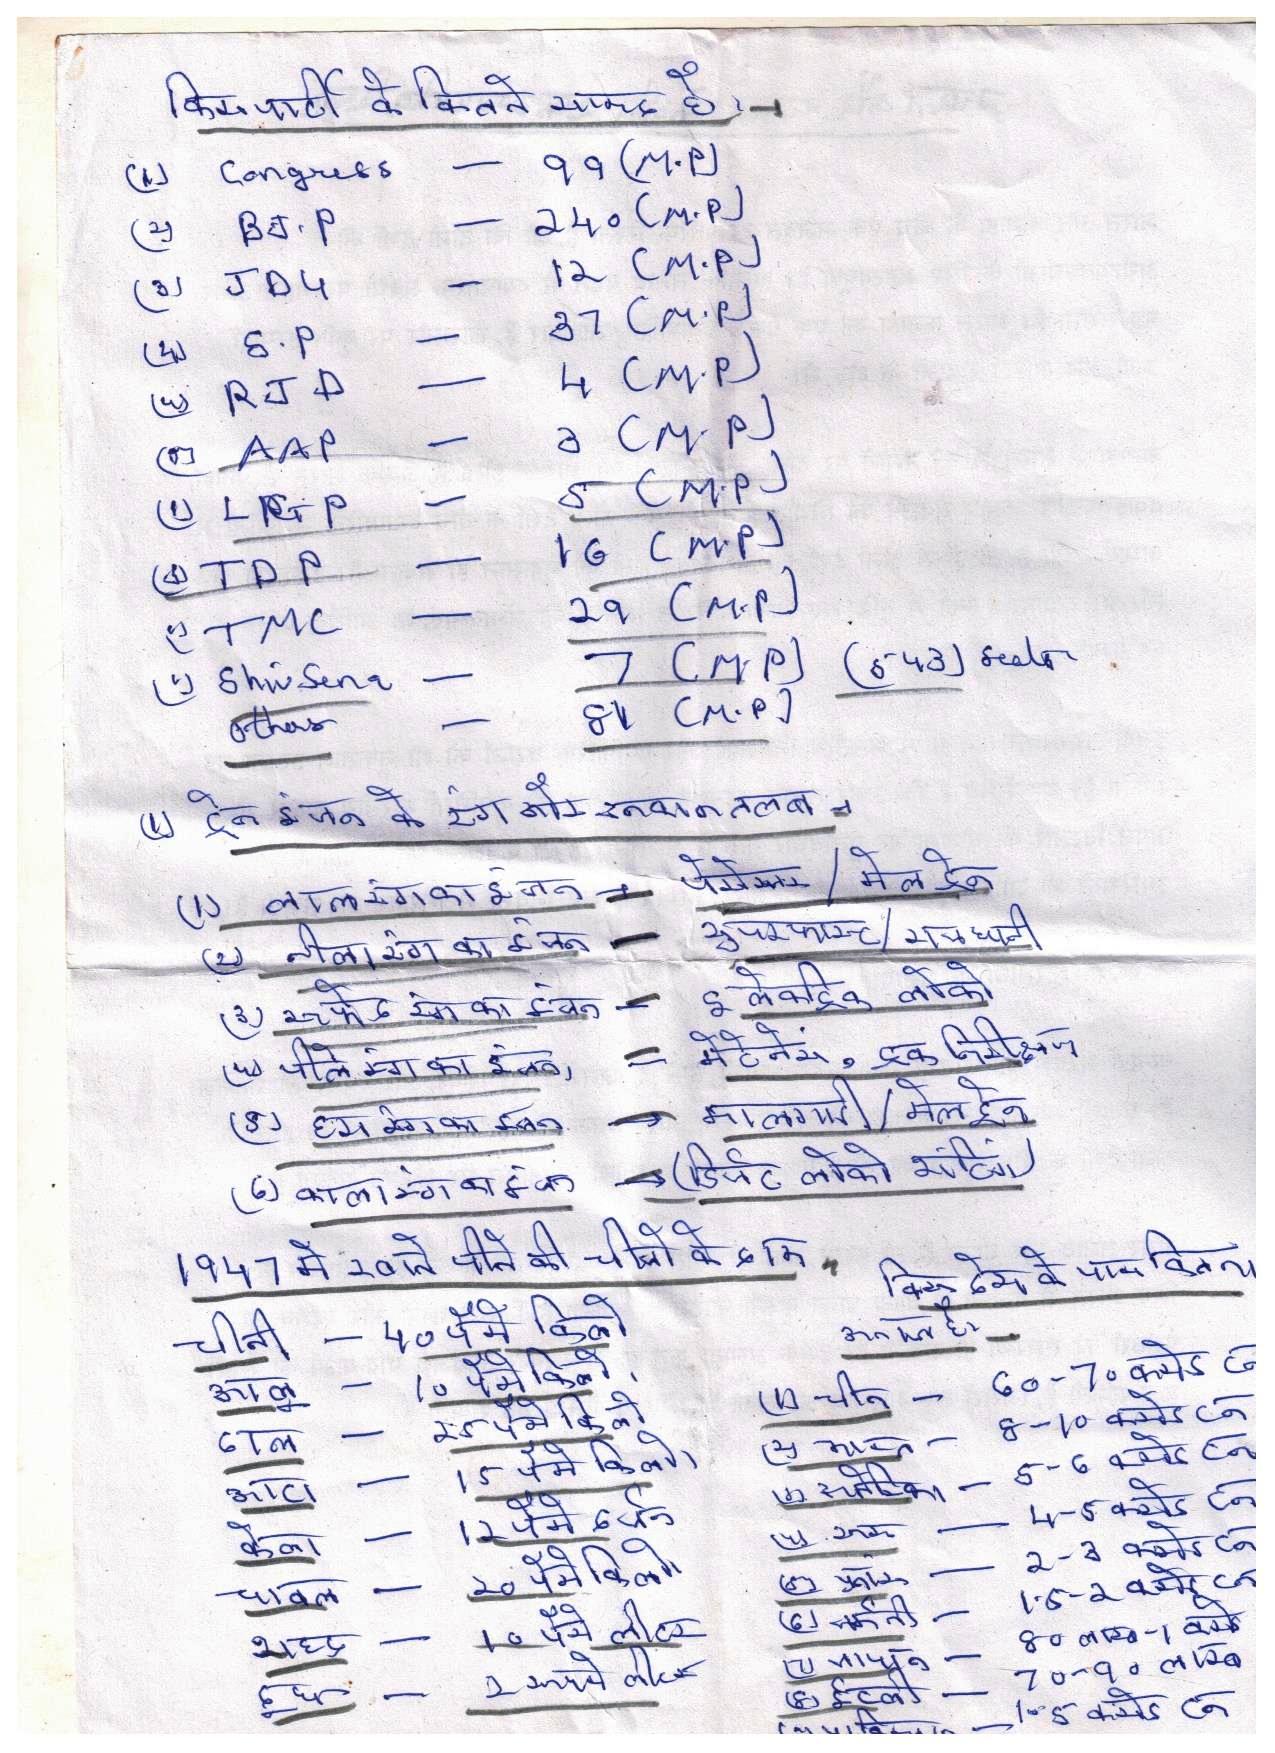 किस पार्टी के कितने सांसद है :-
(1) Congress — 99 (M.P)
(2) BJ.P — 240 (M.P)
(3) JDU — 12 (M.P)
(4) S.P — 37 (M.P)
(5) RJD — 4 (M.P)
(6) AAP — 3 (M.P)
(7) LPJP — 5 (M.P)
(8) TDP — 16 (M.P)
(9) TMC — 29 (M.P)
(10) ShivSena — 7 (M.P) (543) seator
others — 81 (M.P)
(1) ट्रेन इंजन के रंग और उनका मतलब -
(1) लाल रंग का इंजन → पैसेंजर / मेल ट्रेन
(2) नीला रंग का इंजन — सुपरफास्ट / राजधानी
(3) सफेद रंग का इंजन — इलेकट्रिक लोको
(4) पीले रंग का इंजन, — मेंटेनेंस, ट्रक निरीक्षण
(5) हरा रंग का इंजन → मालगाड़ी / मेल ट्रेन
(6) काला रंग का इंजन → (डिपोट लोको शंटिंग)
1947 में खाने पीने की चीजों के दाम -
चीनी — 40 पैसे किलो
आलु — 10 पैसे किलो,
दाल — 25 पैसे किलो
आटा — 15 पैसे किलो,
केला — 12 पैसे दर्जन
चावल — 20 पैसे किलो
शहद — 10 पैसे लीटर
दूध — 2 रूपये लीटर
किस देश के पास कितना
अनाज है -
(1) चीन — 60-70 करोड़ टन
(2) भारत — 8-10 करोड़ टन
(3) अमेरिका — 5-6 करोड़ टन
(4) रूस — 4-5 करोड़ टन
(5) फ्रांस — 2-3 करोड़ टन
(6) जर्मनी — 1.5-2 करोड़ टन
(7) जापान — 80 लाख-1 करोड़
(8) इटली — 70-90 लाख
पाकिस्तान — 1.5 करोड़ टन